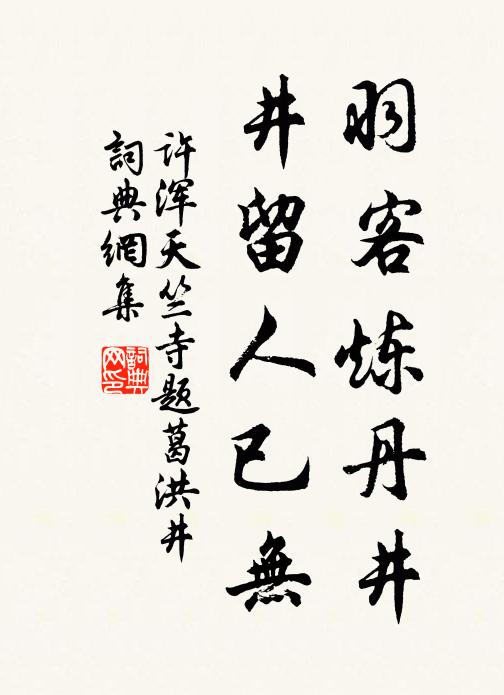 羽客炼丹井
井留人已無
许浑天竺寺题葛洪井
詞典網集
詞典网印